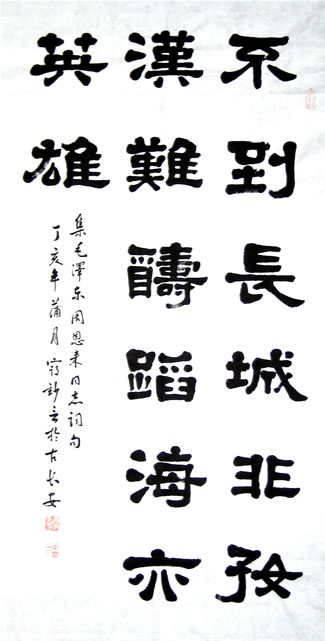 不到長城非好
漢難醻蹈海亦
英雄
集毛澤东周恩来同志词句
丁亥年蒲月於古长安